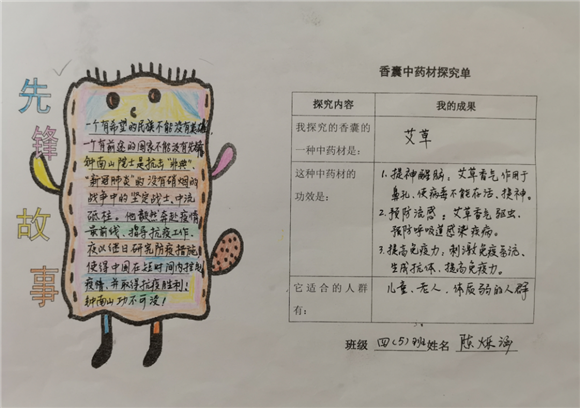 先锋故事
一个有希望的民族不能没有英雄,
一个有前途的国家不能没有先锋
钟南山院士是抗击"非典"、
"新冠肺炎"的没有硝烟的
战争中的坚定战士、中流
砥柱。他毅然奔赴疫情
最前线、指导抗疫工作、
夜以继日研究防疫措施,
使得中国在短时间内控制
疫情、并取得抗疫胜利、
钟南山功不可没!
香囊中药材探究单
探究内容
我的成果
我探究的香囊的
一种中药材是:
艾草
这种中药材的
功效是:
1. 提神醒脑:艾草香气作用于
鼻孔,使病毒不能存活、提神。
2. 预防流感:艾草香气驱虫、
预防呼吸道感染疾病。
3. 提高免疫力,刺激免疫
生成抗体、提高免疫力。
它适合的人群
有:
儿童、老人、体质弱的人群
班级 四(5)班 姓名 陈烁涵